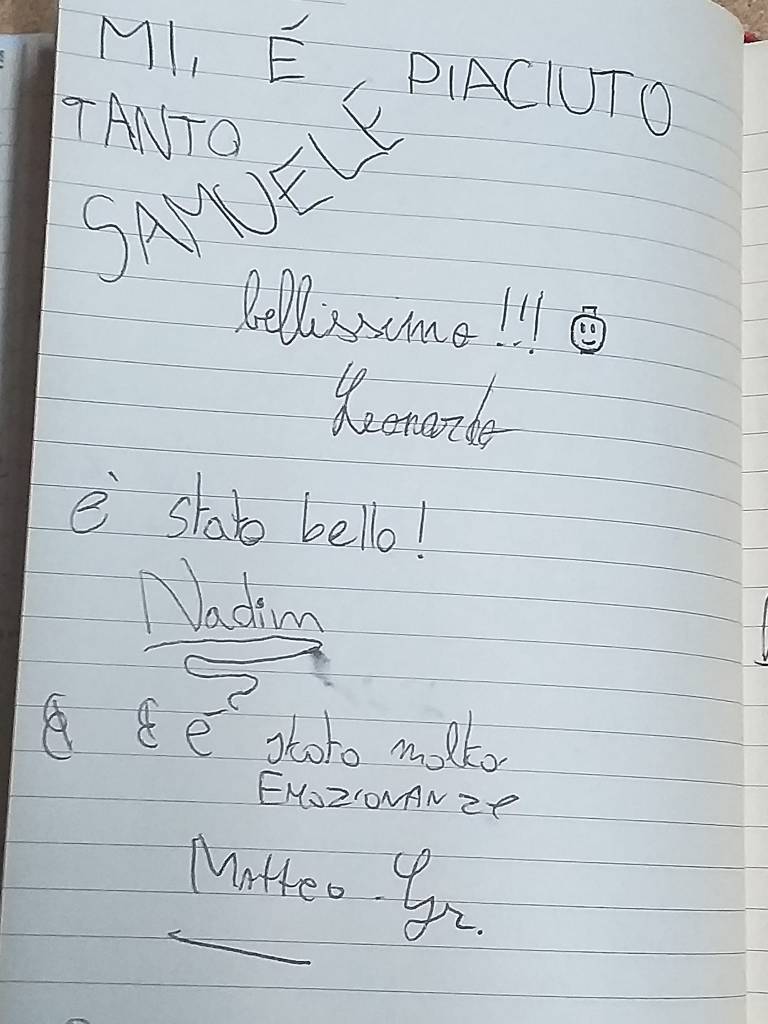 MI, É PIACIUTO
TANTO
SAMUELE
bellissimo !!!
Leonardo
è stato bello!
Nadim
è stato molto
EMOZIONANZE
Matteo. Gr.